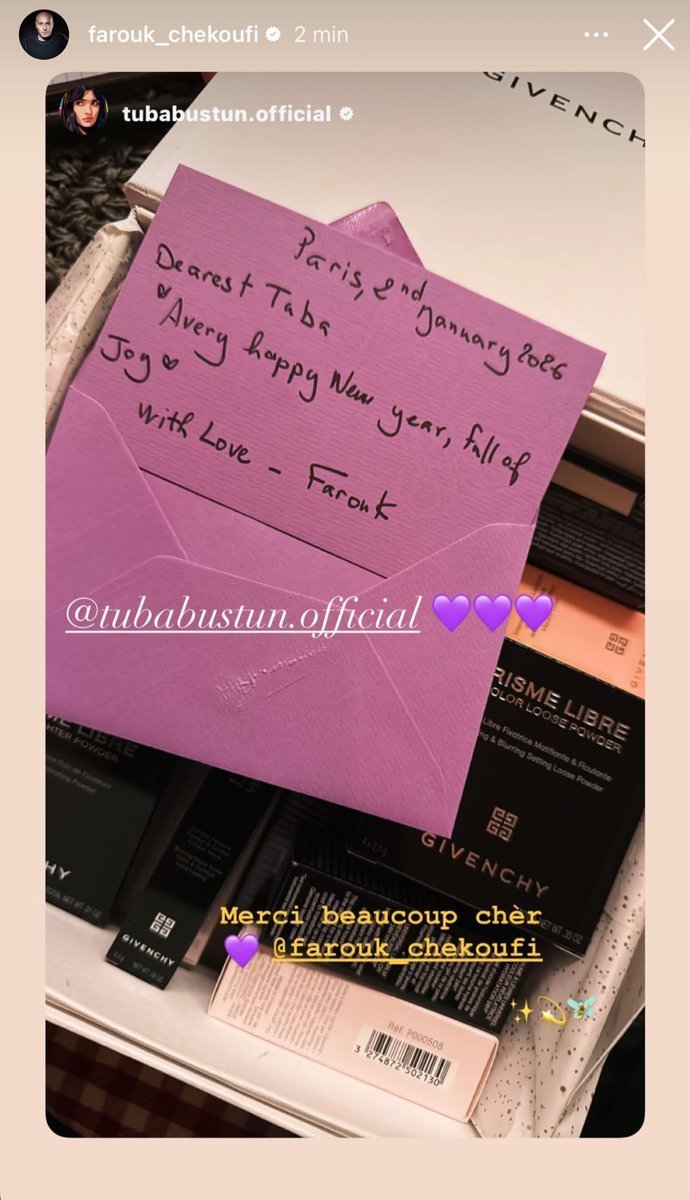 farouk_chekoufi 2 min
tubabustun.official
GIVENCH
Paris, 2nd january 2026
Dearest Tuba
A very happy New year, full of
Joy
With Love - Farouk
@tubabustun.official 💜💜💜
RISME LIBRE
OLOR LOOSE POWDER
Libre Fixatrice Matifiante & Floutante
ng & Blurring Setting Loose Powder
GIVENCHY
ME LIBRE
HTER POWDER
HY
GIVENCHY
Merci beaucoup chèr
💜 @farouk_chekoufi
✨💫🧚
Réf. P000508
3 274872 502130